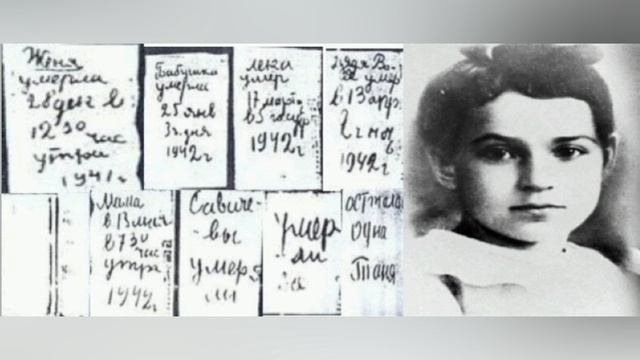 Женя
умерла
28 дек в
12 30
час
утра
1941 г
Бабушка
умерла
25 янв
3 ч дня
1942 г
Лека
умер
17 марта
в 5 час утр
1942 г
Дядя Ва-
ся умер
в 13 апр
2 ч ноч
1942 г
Мама
в 13 мая
в 7 30
час
утра
1942 г
Савиче-
вы
умер
ли
Умер
ли
осталась
одна
Таня